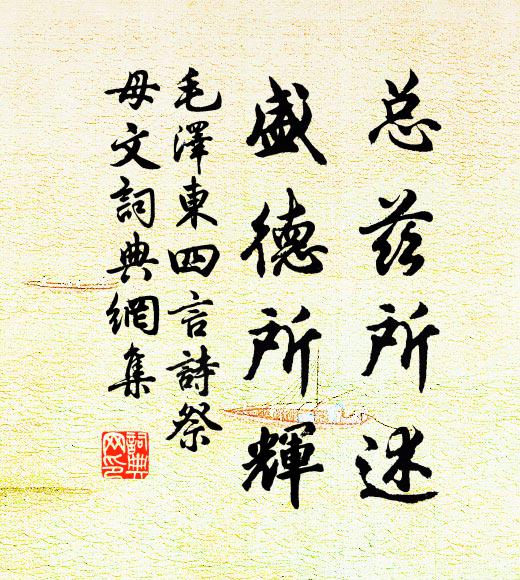 总兹所述
盛德所輝
毛澤東四言詩祭
母文詞典網集
詞典
网印